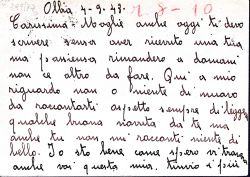 Olbia 4-9.43.
Carissima Moglie anche oggi ti devo
scrivere senza aver ricevuto una tua
ma pasiensa rimandero a domani
non ce altro da fare. Qui a mio
riguardo non o niente di nuovo
da raccontarti aspetto sempre di leggere
qualche buona novità da te ma
anche tu non mi racconti niente di
bello. Io sto bene come spero vi trovi
anche voi questa mia. Invio i più